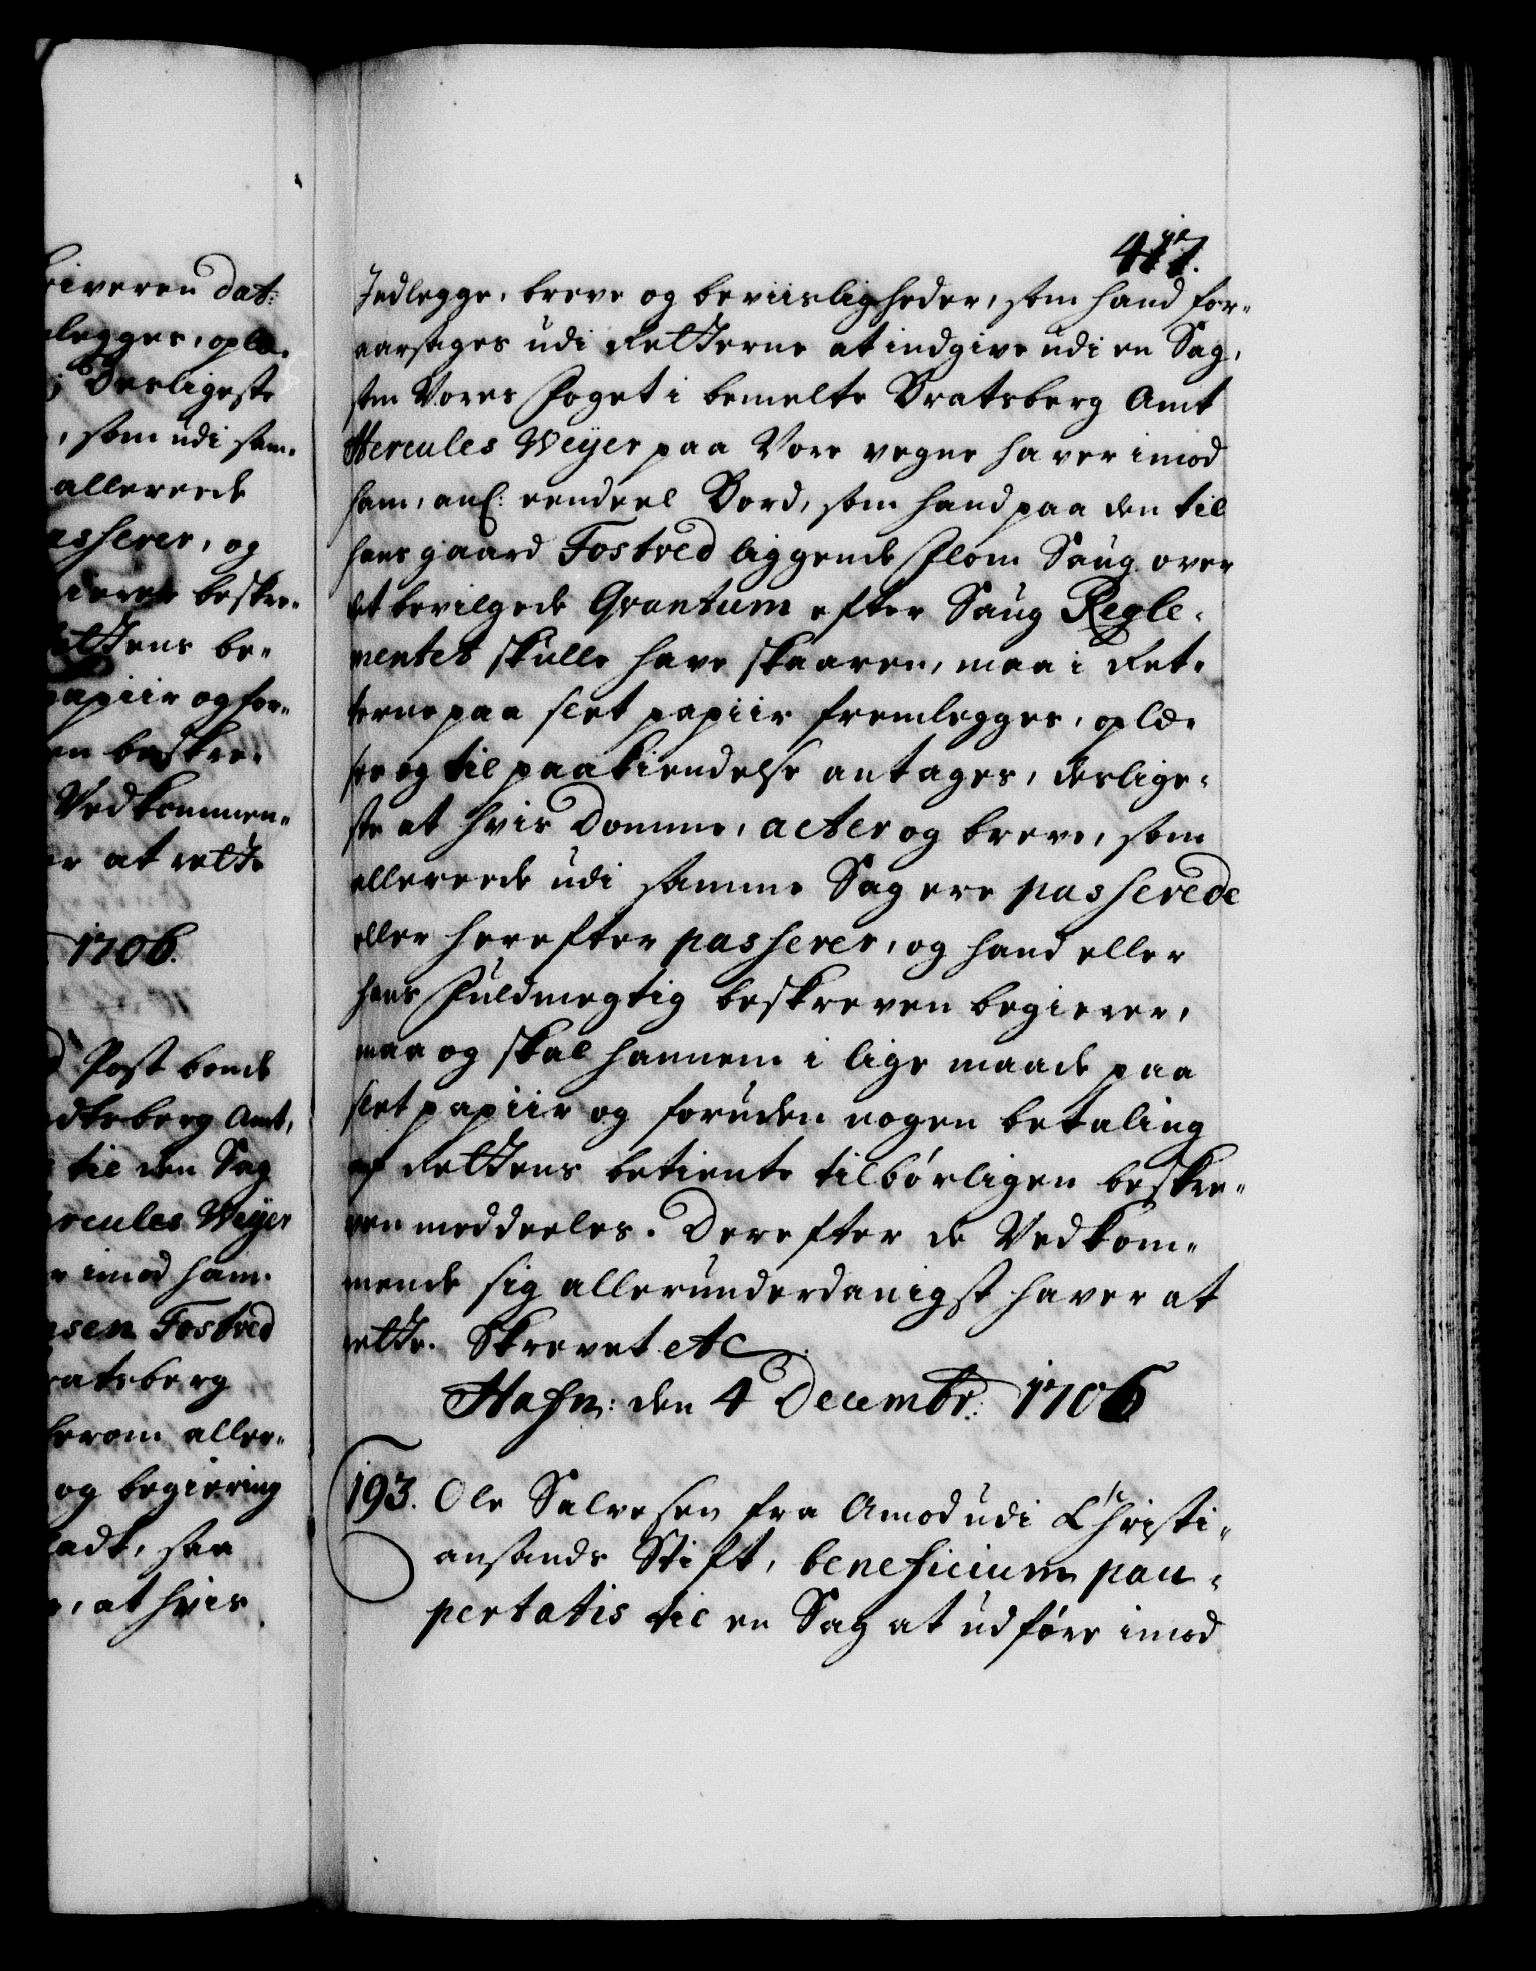 iveren dat:
legges, oplæ-
Desligeste
, som udi sam-
allerede
asserer, og
deres beskre-
ettens be-
papiir og for-
en beskre-
Vedkommen-
er at rette
1706.
Post bonde
dtsberg Amt,
til den Sag
rcules Weyer
r imod ham.
nsen Fostved
ratsberg
herom aller-
og begiering
ladt, saa
, at hvis
417.
Indlegge, breve og beviisligheder, som hand for-
aarsages udi Retterne at indgive udi en Sag,
som Vores Foget i bemelte Bratsberg Amt
Hercules Weyer paa Vore vegne haver imod
ham, anl: eendeel Bord, som hand paa den til
hans gaard Fostved liggende Flom Saug over
det bevilgede Qvantum efter Saug Regle-
mentet skulle have skaaren, maa i Ret-
terne paa slet papiir fremlegges, oplæ-
ses og til paakiendelse antages, deslige-
ste at hvis Domme, acter og breve, som
allereede udi samme Sag ere passerede
eller herefter passerer, og hand eller
hans Fuldmegtig beskreven begierer,
maa og skal hannem i lige maade paa
slet papiir og foruden nogen betaling
af Rettens betiente tilbørligen beskre-
ven meddeeles. Derefter de Vedkom-
mende sig allerunderdanigst haver at
rette. Skrevet etc.
Hafn: den 4 Decembr: 1706
193. Ole Salvesen fra Amod udi Christi-
ansands Stift, beneficium pau-
pertatis til en Sag at udføre imod